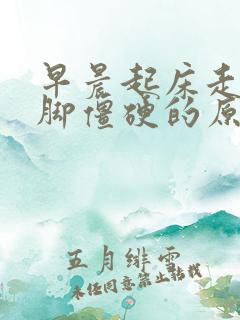 早晨起床走
脚僵硬的原
五月绯雲
未经同意禁止转载